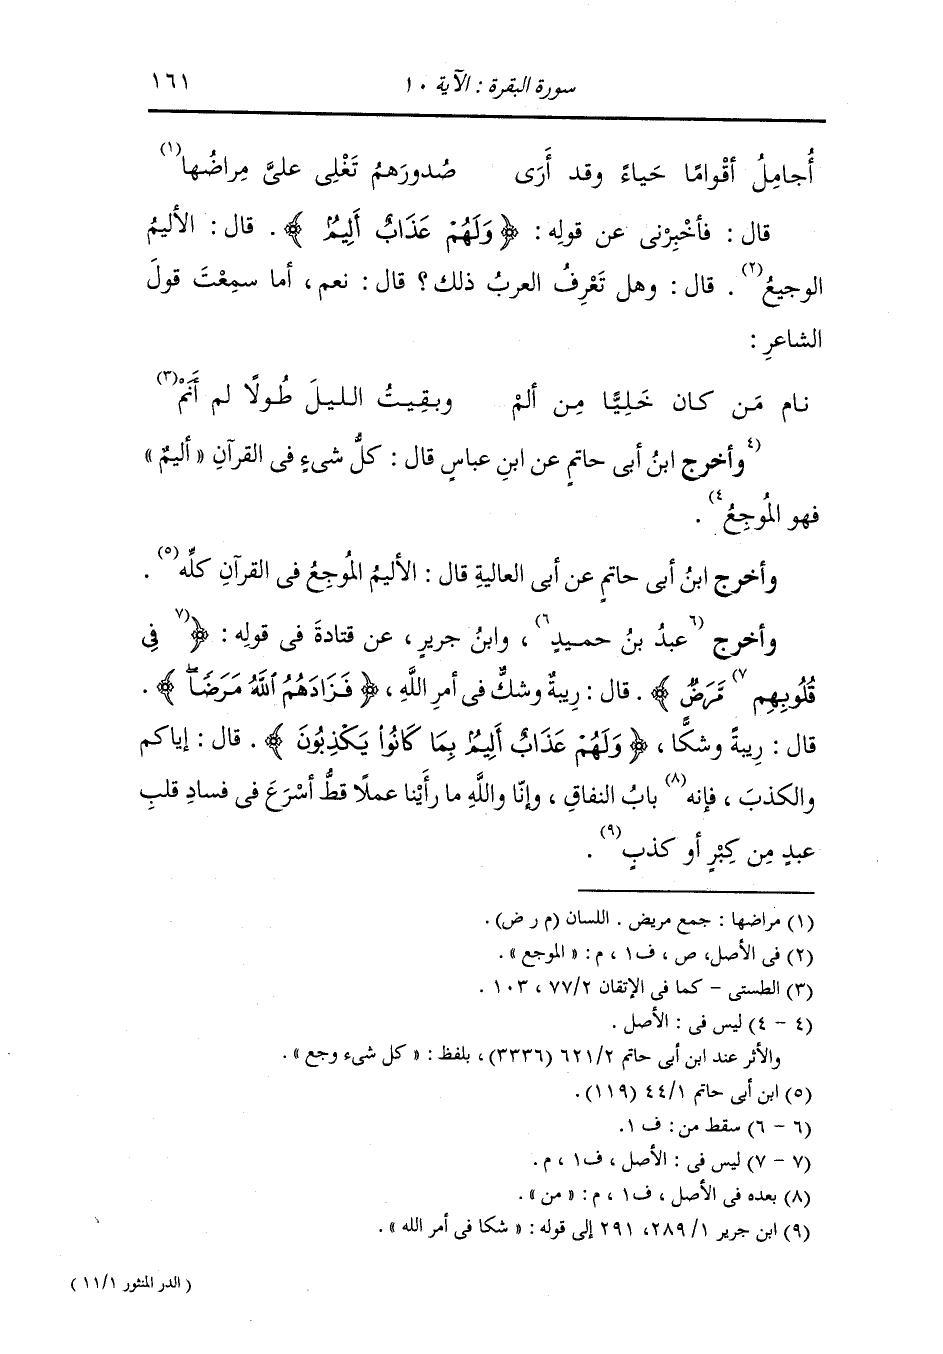 سورة البقرة : الآية ١٠ ١٦١
أُجامِلُ أقْوامًا حَياءً وقد أَرَى صُدورَهمُ تَغْلِى علىَّ مِراضُها(١)
قال : فأخْبِرْنى عن قولِه : ﴿ وَلَهُمْ عَذَابٌ أَلِيمٌ ﴾ . قال : الأليمُ
الوجيعُ(٢) . قال : وهل تَعْرِفُ العربُ ذلك ؟ قال : نعم ، أما سمِعْتَ قولَ
الشاعرِ :
نام مَن كان خَلِيًّا مِن ألمْ وبقِيتُ الليلَ طُولًا لم أَنَمْ(٣)
(٤وأخرج ابنُ أبى حاتمٍ عن ابنِ عباسٍ قال : كلُّ شىءٍ فى القرآنِ « أليمٌ »
فهو المُوجِعُ٤) .
وأخرج ابنُ أبى حاتمٍ عن أبى العاليةِ قال : الأليمُ المُوجِعُ فى القرآنِ كلِّه(٥) .
وأخرج (٦عبدُ بنُ حميدٍ٦) ، وابنُ جريرٍ ، عن قتادةَ فى قولِه : ﴿(٧ فِى
قُلُوبِهِم ٧) مَّرَضٌ ﴾ . قال : رِيبةٌ وشكٌّ فى أمرِ اللَّهِ ، ﴿ فَزَادَهُمُ ٱللَّهُ مَرَضًا ﴾ .
قال : رِيبةً وشكًّا ، ﴿ وَلَهُمْ عَذَابٌ أَلِيمٌ بِمَا كَانُوا۟ يَكْذِبُونَ ﴾ . قال : إياكم
والكذبَ ، فإنه(٨) بابُ النفاقِ ، وإنّا واللَّهِ ما رأَيْنا عملًا قطُّ أسْرَعَ فى فسادِ قلبِ
عبدٍ مِن كِبْرٍ أو كذبٍ(٩) .
(١) مراضها : جمع مريض . اللسان (م ر ض) .
(٢) فى الأصل، ص ، ف١ ، م : « الموجع » .
(٣) الطستى - كما فى الإتقان ٧٧/٢ ، ١٠٣ .
(٤ - ٤) ليس فى : الأصل .
والأثر عند ابن أبى حاتم ٦٢١/٢ (٣٣٣٦) ، بلفظ : « كل شىء وجع » .
(٥) ابن أبى حاتم ٤٤/١ (١١٩) .
(٦ - ٦) سقط من : ف ١.
(٧ - ٧) ليس فى : الأصل ، ف١ ، م.
(٨) بعده فى الأصل ، ف١ ، م : « من » .
(٩) ابن جرير ١/ ٢٨٩، ٢٩١ إلى قوله : « شكا فى أمر الله » .
( الدر المنثور ١١/١ )